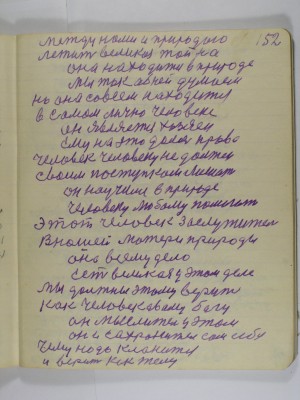 152
между нами и природою
лежит великая тойна
она находити в природе
мы ток абней думаем
но она совсем находитеся
в самом лично человеке
он является хозяен
ему на это дала право
человек человеку не должен
своим поступком мешат
он научили в природе
человеку любому помогат
этот человек заслужител
в нашей матери природы
она всему дело
есть великая у этом деле
мы должны этому верить
как человековому богу
он мыслител у этом
он и сахронител сам себя
чему нодо кланится
и верит как телу